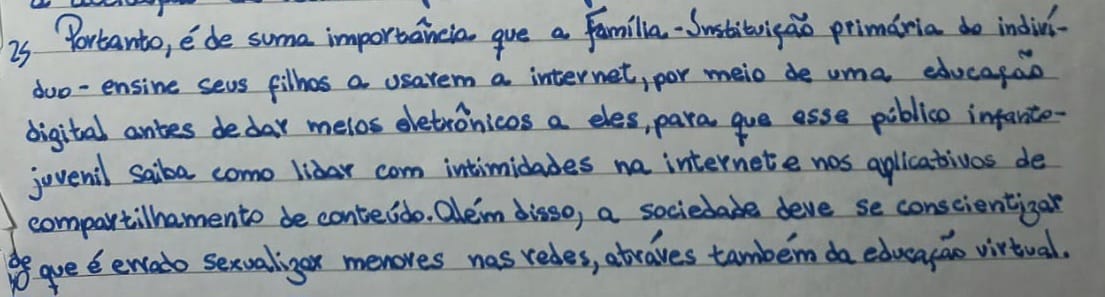 25 Portanto, é de suma importância que a Família - Instituição primária do indiví-
duo - ensine seus filhos a usarem a internet, por meio de uma educação
digital antes de dar meios eletrônicos a eles, para que esse público infanto-
juvenil saiba como lidar com intimidades na internet e nos aplicativos de
compartilhamento de conteúdo. Além disso, a sociedade deve se conscientizar
de que é errado sexualizar menores nas redes, atráves também da educação virtual.